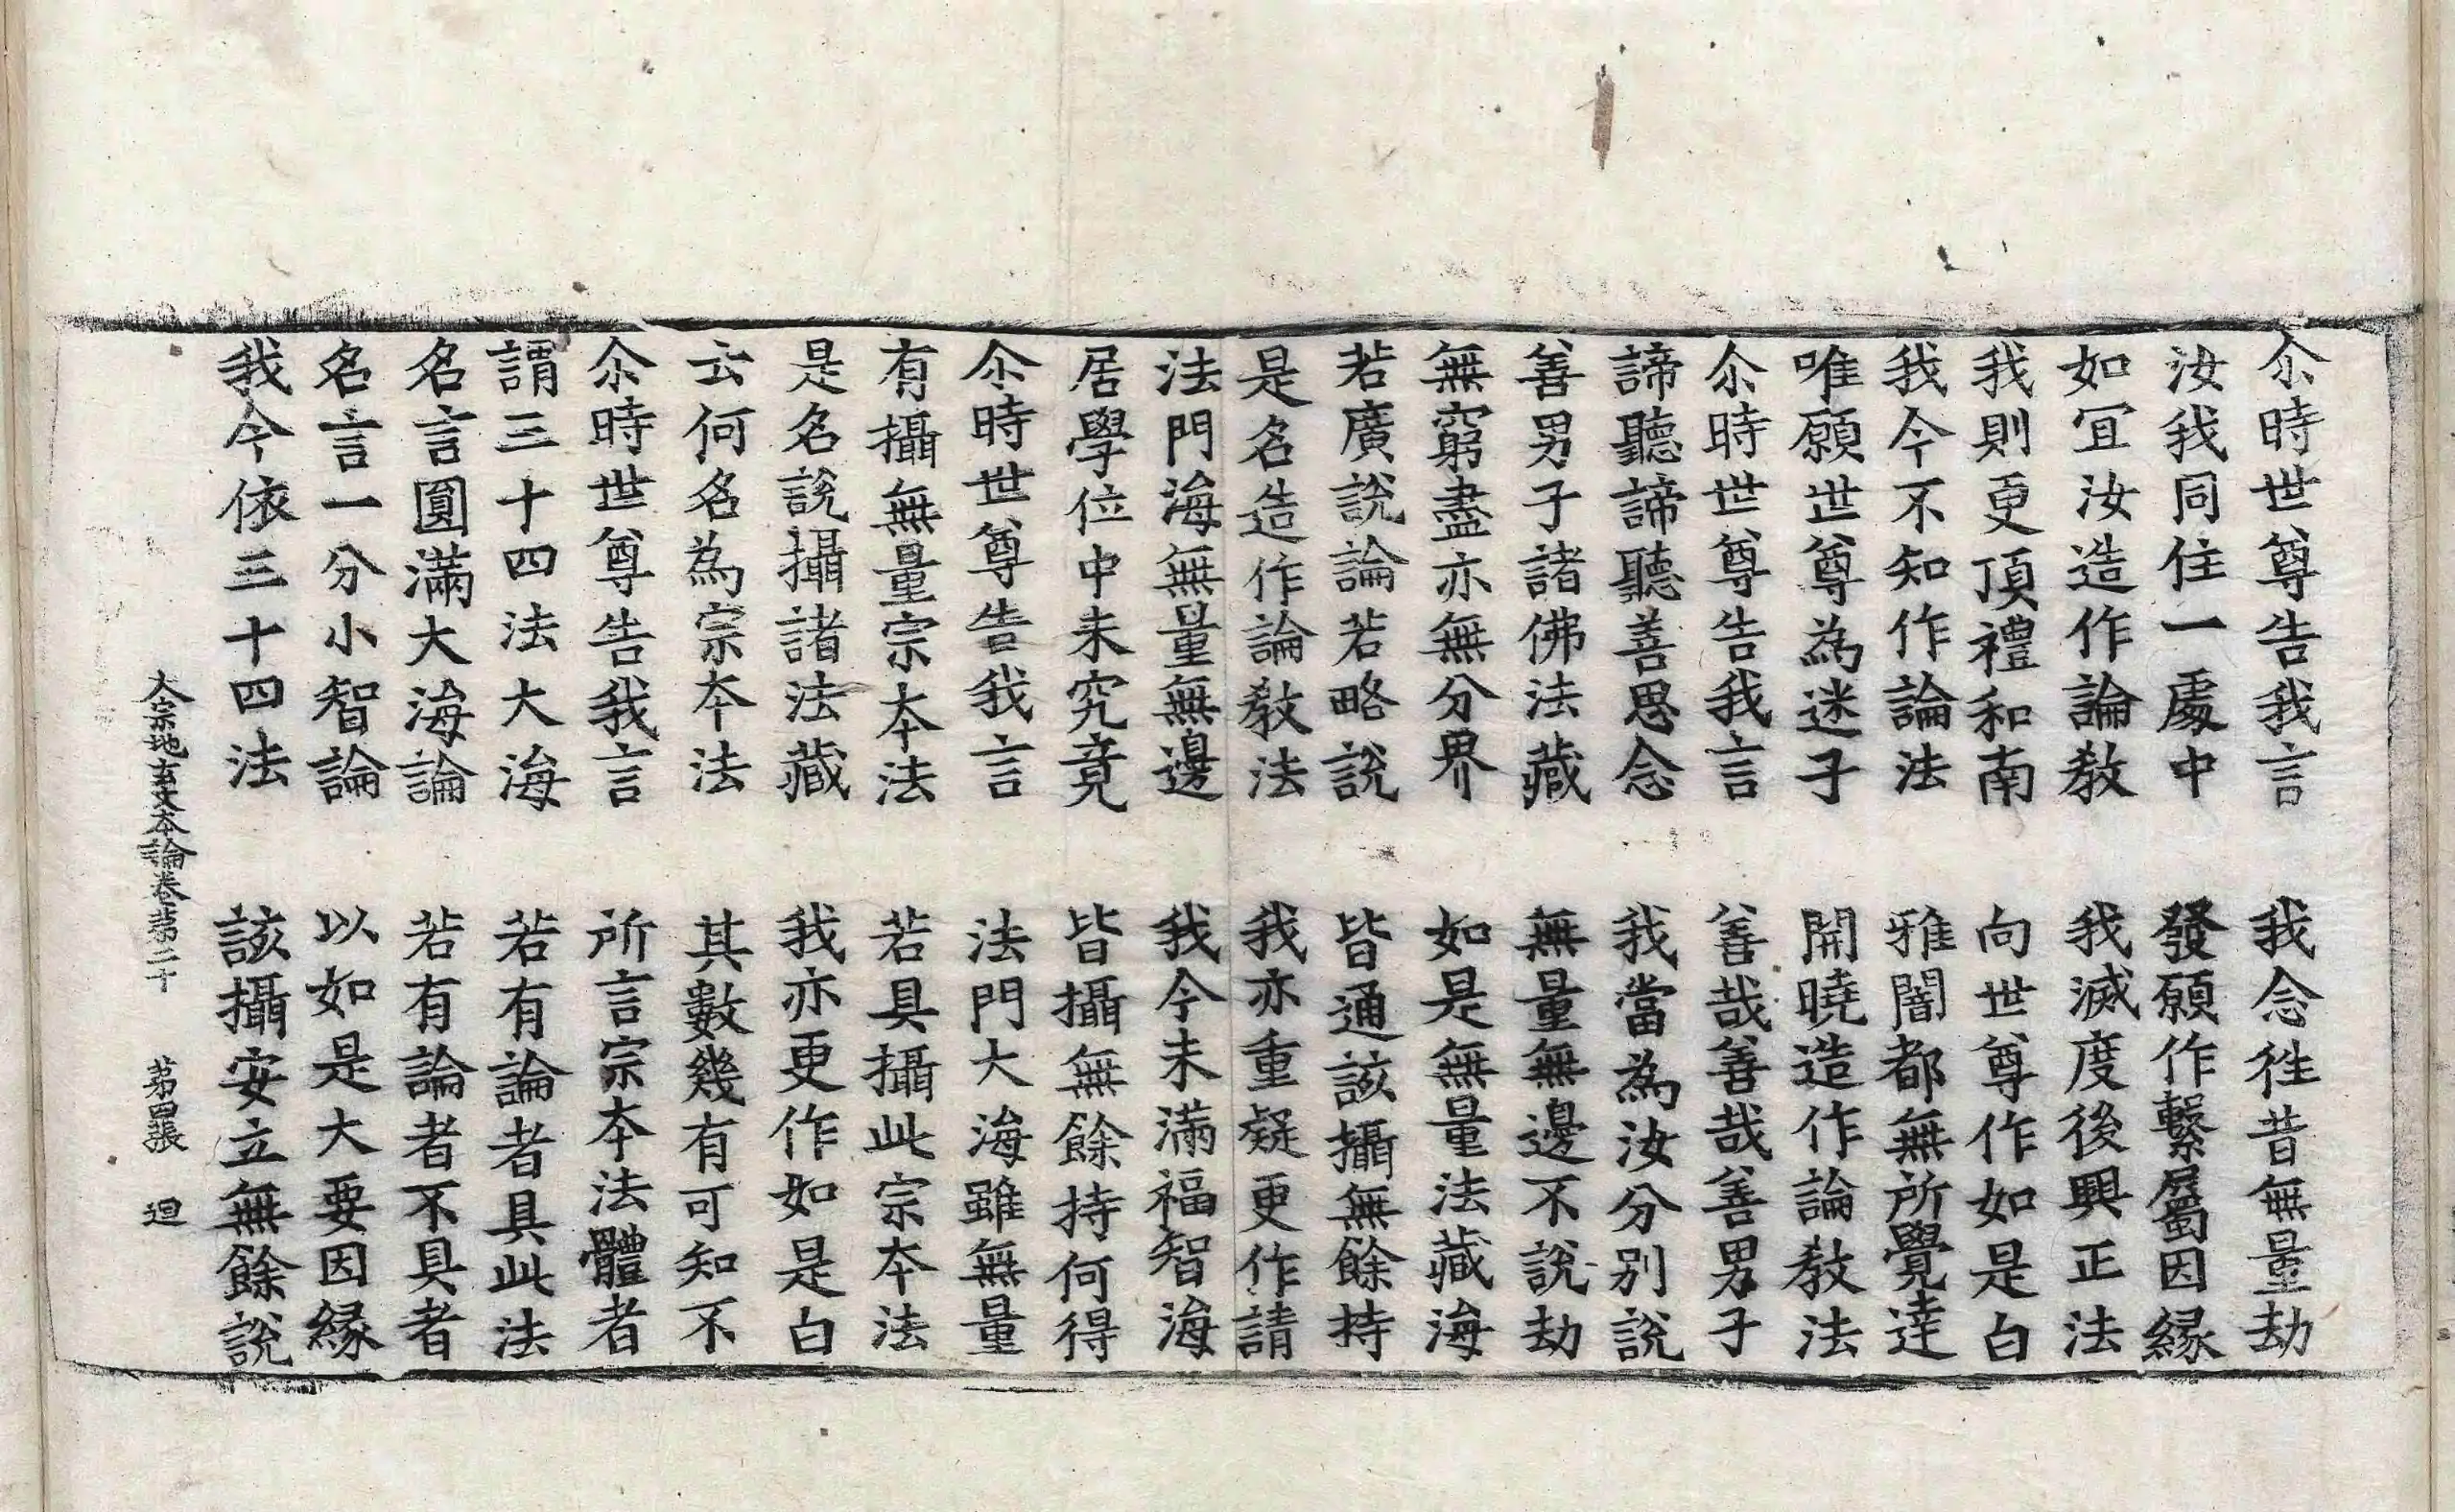 尒時世尊告我言　我念徃昔無量劫
汝我同住一處中　發願作繫屬因縁
如冝汝造作論教　我滅度後興正法
我則更頂禮和南　向世尊作如是白
我今不知作論法　雅闇都無所覺達
唯願世尊為迷子　開曉造作論教法
尒時世尊告我言　善哉善哉善男子
諦聽諦聽善思念　我當為汝分别說
善男子諸佛法藏　無量無邊不說劫
無窮盡亦無分界　如是無量法藏海
若廣說論若略說　皆通該攝無餘持
是名造作論教法　我亦重疑更作請
法門海無量無邊　我今未滿福智海
居學位中未究竟　皆攝無餘持何得
尒時世尊告我言　法門大海雖無量
有攝無量宗夲法　若具攝此宗夲法
是名說攝諸法藏　我亦更作如是白
云何名為宗夲法　其數幾有可知不
尒時世尊告我言　所言宗夲法體者
謂三十四法大海　若有論者具此法
名言圓滿大海論　若有論者不具者
名言一分小智論　以如是大要因縁
我今依三十四法　該攝安立無餘說
大宗地玄文夲論卷苐二十　苐四張　𢌞